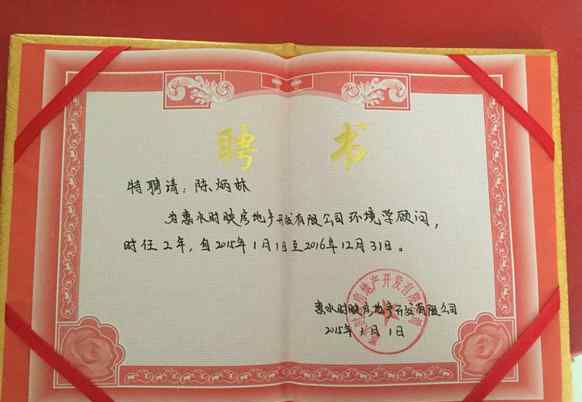 聘 书
特聘请：陈炳林
为惠水时映房地产开发有限公司环境学顾问，
时任2年，自2015年1月1日至2016年12月31日。
惠水时映房地产开发有限公司
2015年1月1日